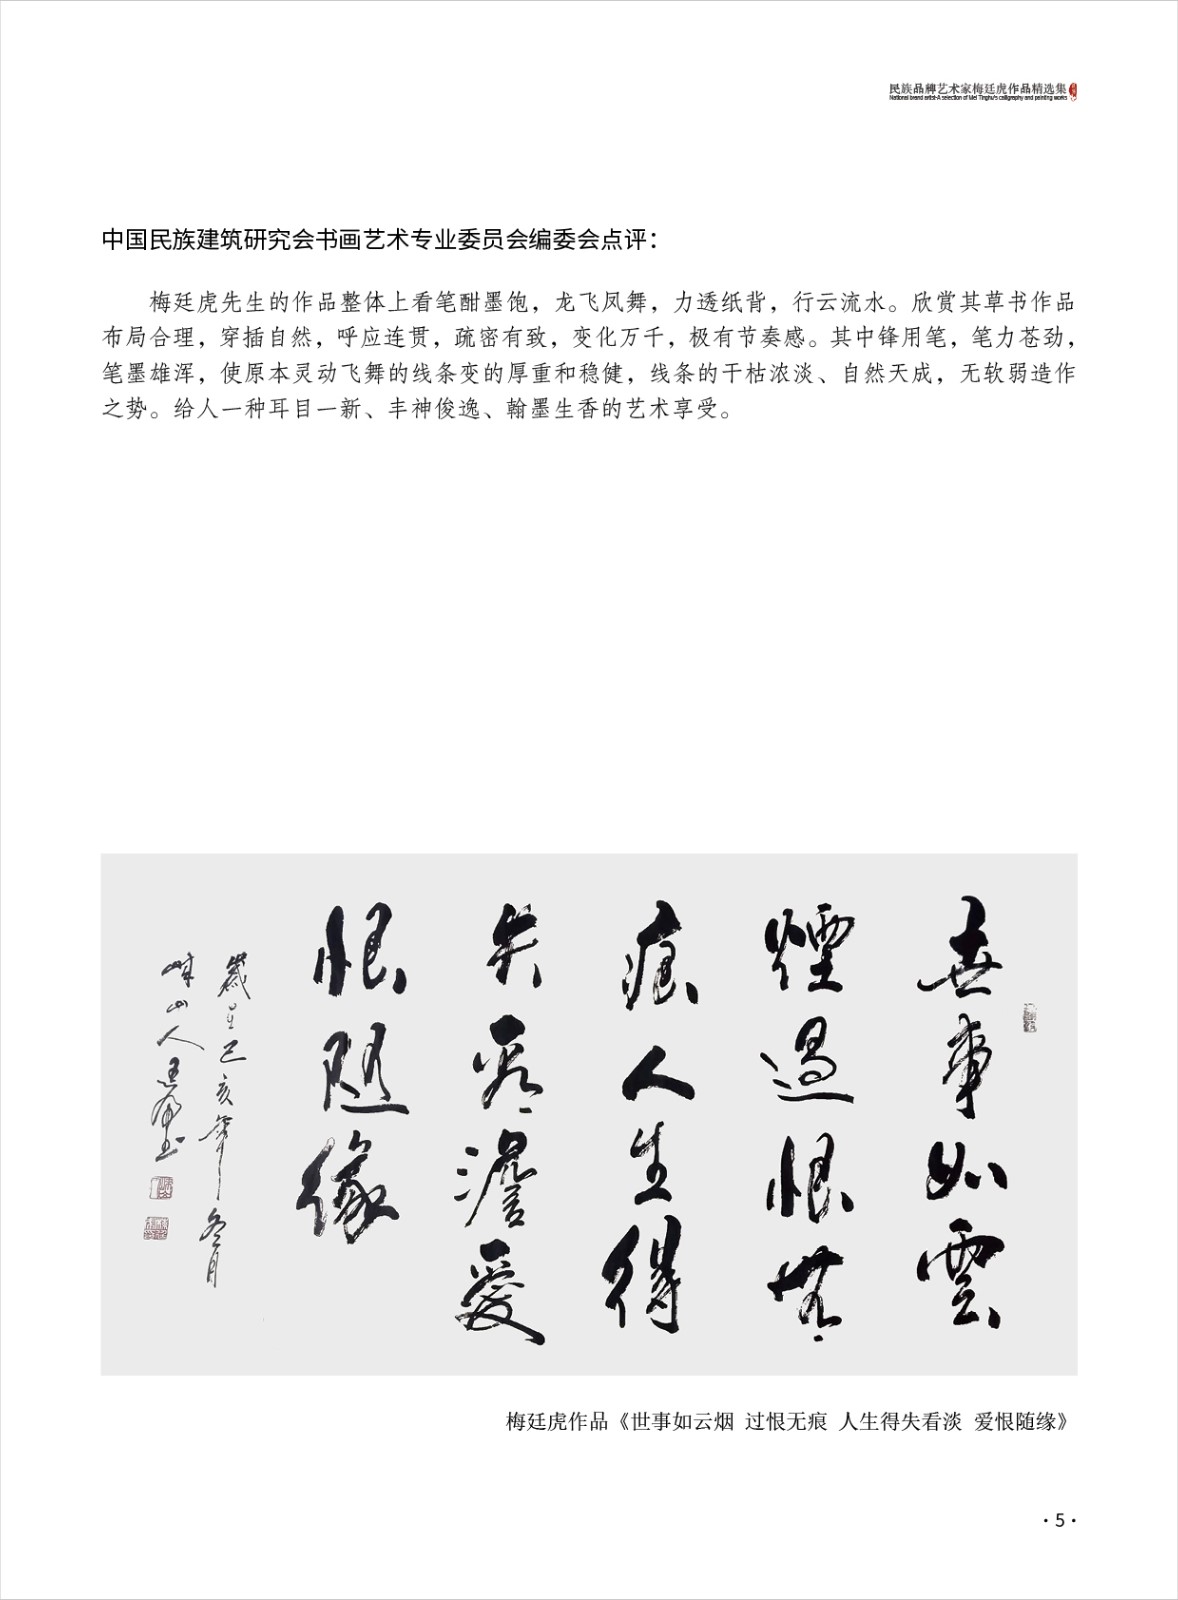 民族品牌艺术家梅廷虎作品精选集
National brand artist-A selection of Mei Tinghu's calligraphy and painting works
中国民族建筑研究会书画艺术专业委员会编委会点评：
梅廷虎先生的作品整体上看笔酣墨饱，龙飞凤舞，力透纸背，行云流水。欣赏其草书作品
布局合理，穿插自然，呼应连贯，疏密有致，变化万千，极有节奏感。其中锋用笔，笔力苍劲，
笔墨雄浑，使原本灵动飞舞的线条变的厚重和稳健，线条的干枯浓淡、自然天成，无软弱造作
之势。给人一种耳目一新、丰神俊逸、翰墨生香的艺术享受。
世事如雲
煙過恨無
痕人生得
失看澹愛
恨隨緣
歲呈己亥年冬月
山人廷虎書
梅廷虎作品《世事如云烟 过恨无痕 人生得失看淡 爱恨随缘》
·5·